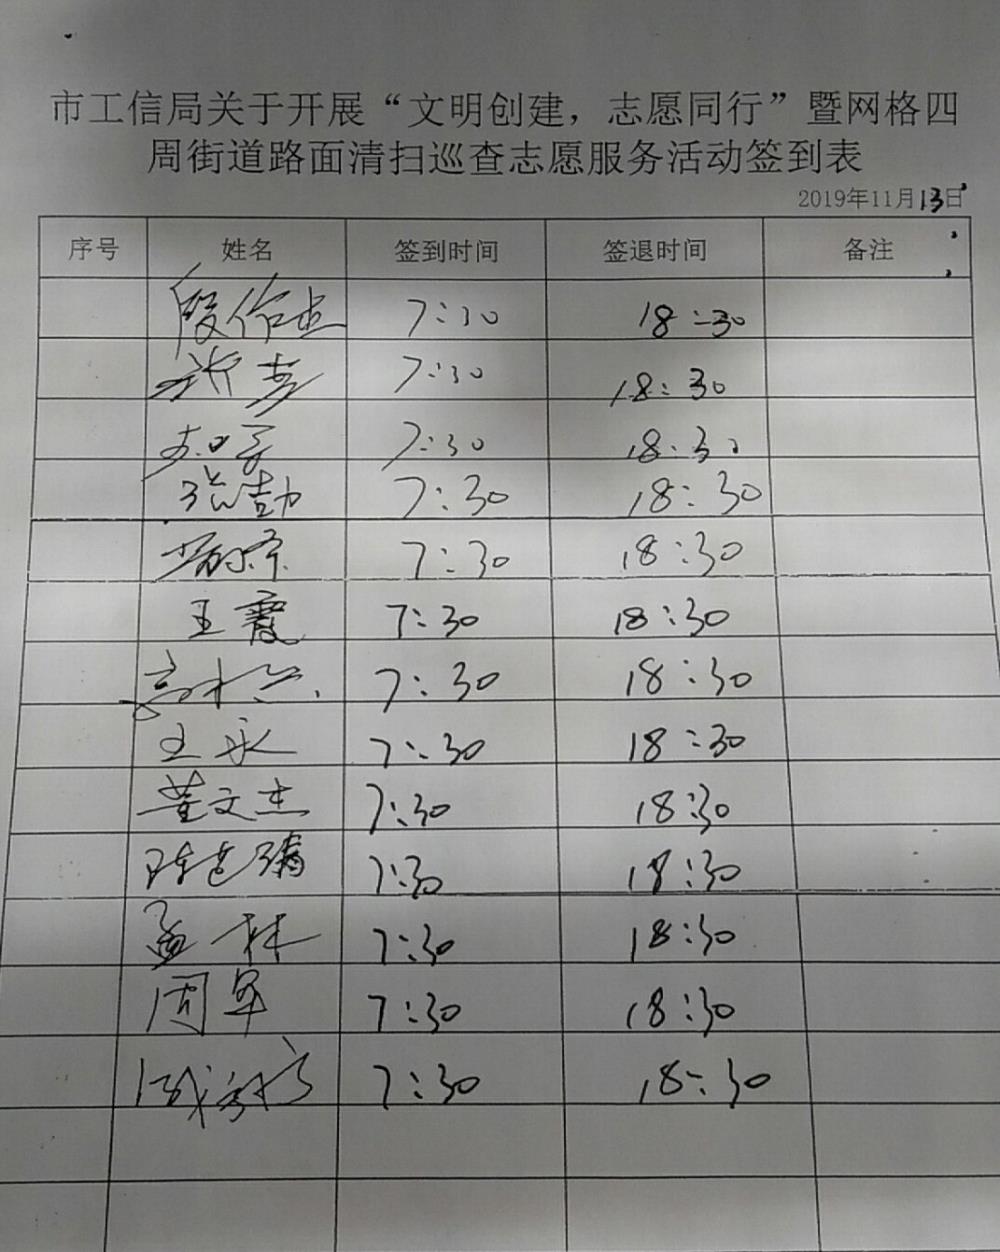 市工信局关于开展“文明创建，志愿同行”暨网格四
周街道路面清扫巡查志愿服务活动签到表
2019年11月13日
序号 姓名 签到时间 签退时间 备注
7:30 18:30
7:30 18:30
7:30 18:30
张劼 7:30 18:30
7:30 18:30
王霞 7:30 18:30
7:30 18:30
王永 7:30 18:30
董文杰 7:30 18:30
7:30 18:30
孟林 7:30 18:30
周军 7:30 18:30
7:30 18:30